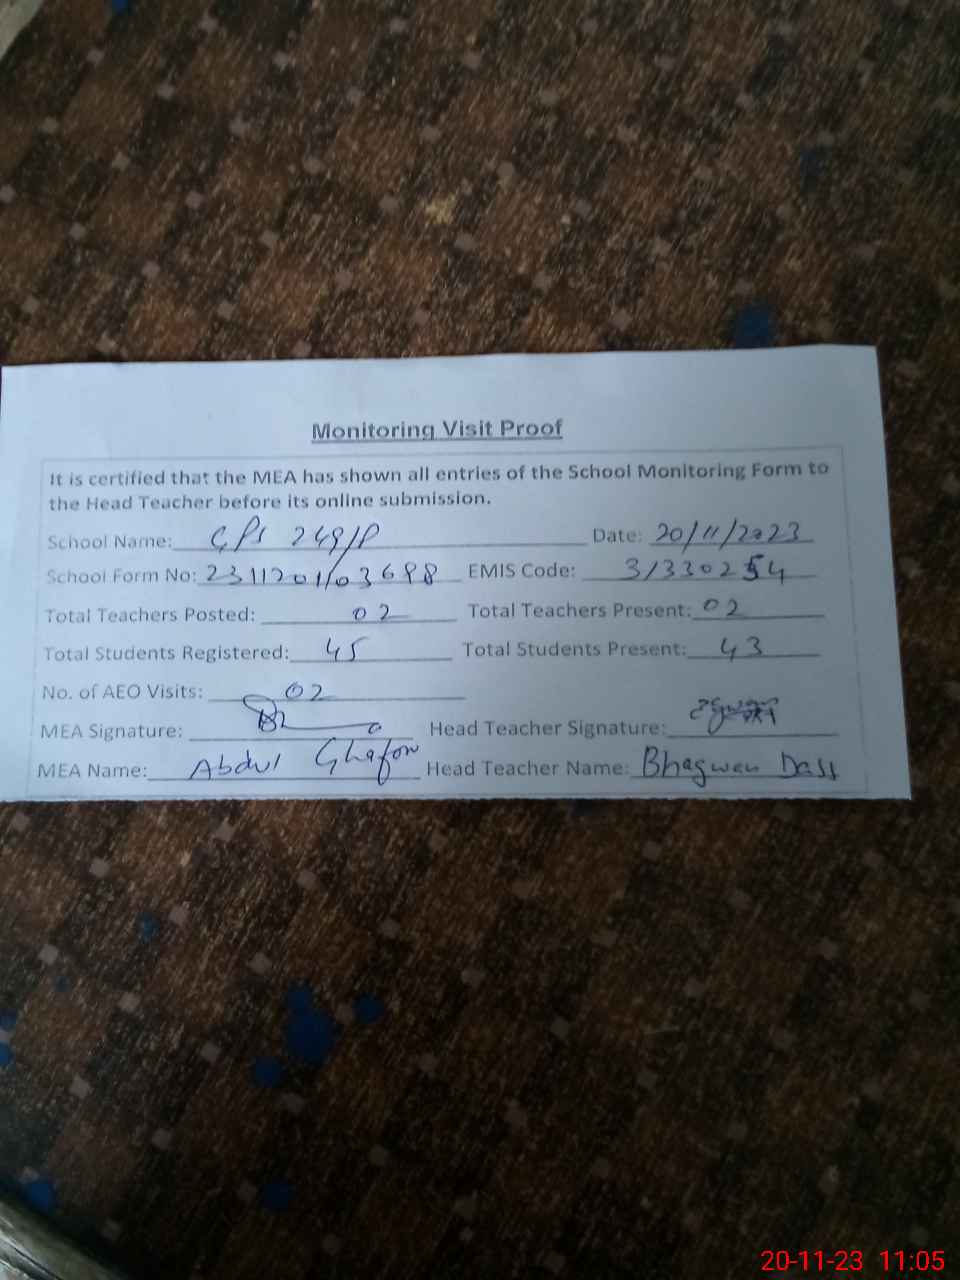 Monitoring Visit Proof
It is certified that the MEA has shown all entries of the School Monitoring Form to
the Head Teacher before its online submission.
School Name: GPS 249/P Date: 20/11/2023
School Form No: EMIS Code: 31330254
Total Teachers Posted: 02 Total Teachers Present: 02
Total Students Registered: 45 Total Students Present: 43
No. of AEO Visits: 02
MEA Signature: Head Teacher Signature:
MEA Name: Abdul Ghafoor Head Teacher Name: Bhagwan Dass
20-11-23 11:05